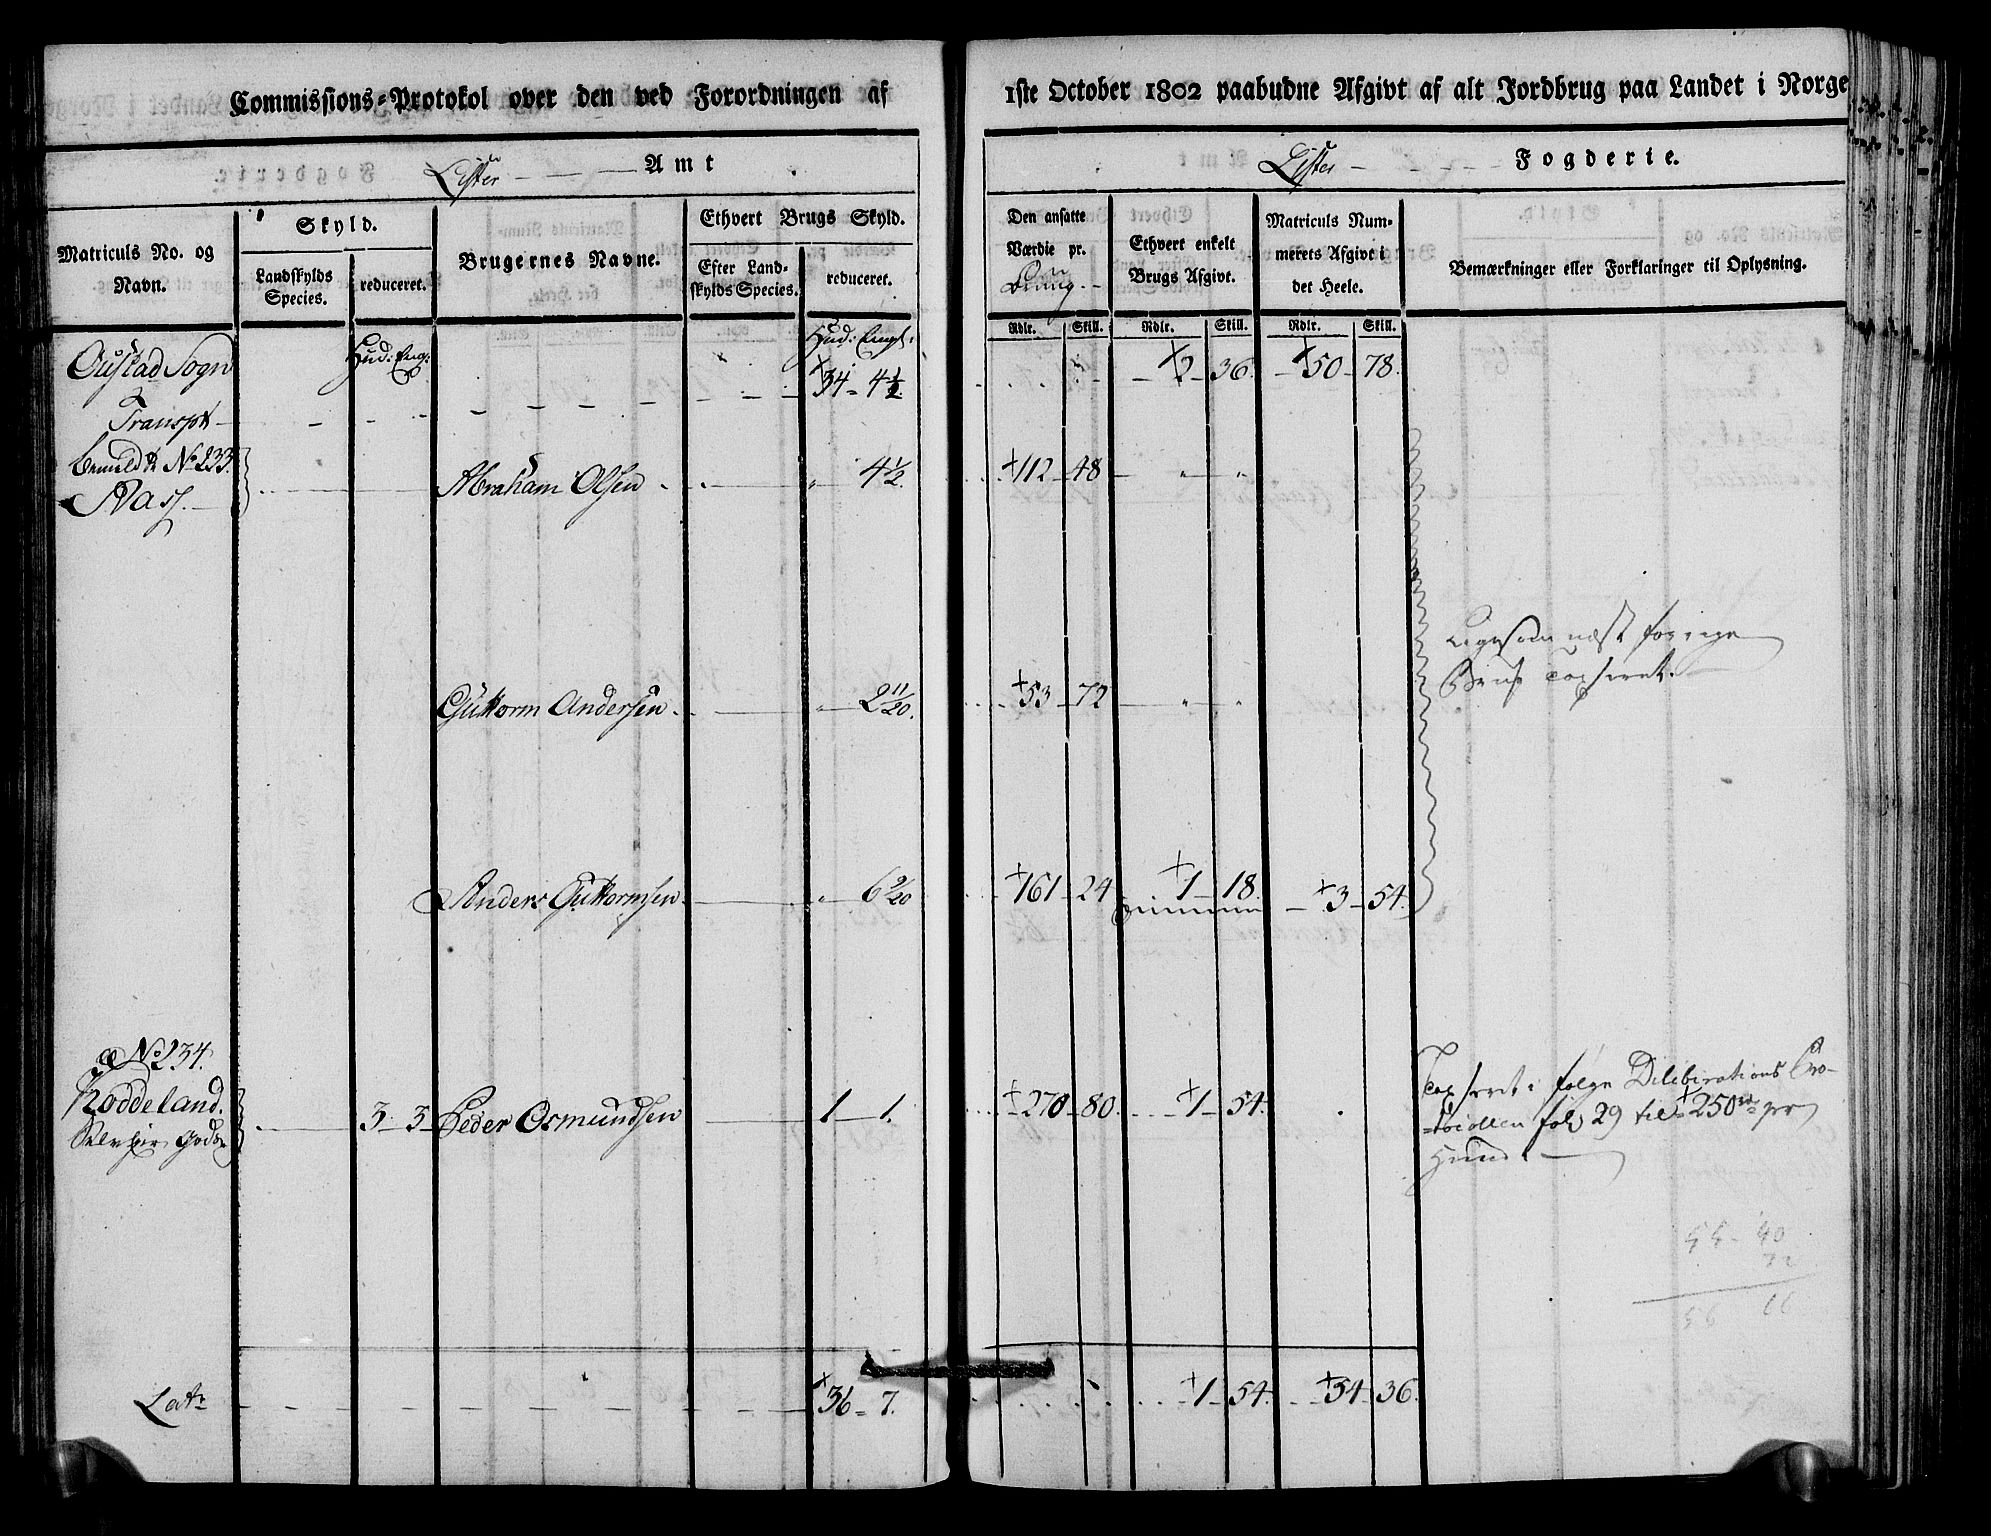 Commissions-Protokol over den ved Forordningen af 1ste October 1802 paabudne Afgivt af alt Jordbrug paa Landet i Norge
Lister Amt
Lister Fogderie.
Matriculs No. og Navn.
Skyld.
Landskylds Species.
reduceret.
Brugernes Navne.
Ethvert Brugs Skyld.
Efter Landskylds Species.
reduceret.
Den ansatte Værdie pr.
Ethvert enkelt Brugs Afgivt.
Matriculs Nummerets Afgivt i det Heele.
Bemærkninger eller Forklaringer til Oplysning.
Rdlr. Skill. Rdlr. Skill. Rdlr. Skill.
Hud: Eng: Hud: Engl:
Oustad Sogn 34 - 4 1/2 2 - 36. 50 - 78.
Transpt
No 233. Abraham Olsen 4 1/2. 112 - 48
Aas.
Ligesom næst forrige
Brug taxseret.
Guttorm Andersen. 2 11/20. 53 - 72
Anders Guttormsen 6 9/20 161 - 24 1 - 18. 3 - 54.
No 234.
Roddeland. 3 - 3 Peder Osmundsen 1 - 1. 270 - 80. 1 - 54.
Taxseret i følge Delibirations Pro-
tocollen fol 29 til 250 rd pr
Hund.
54 - 40
72
Latr 36 - 7. 1 - 54. 54 - 36.